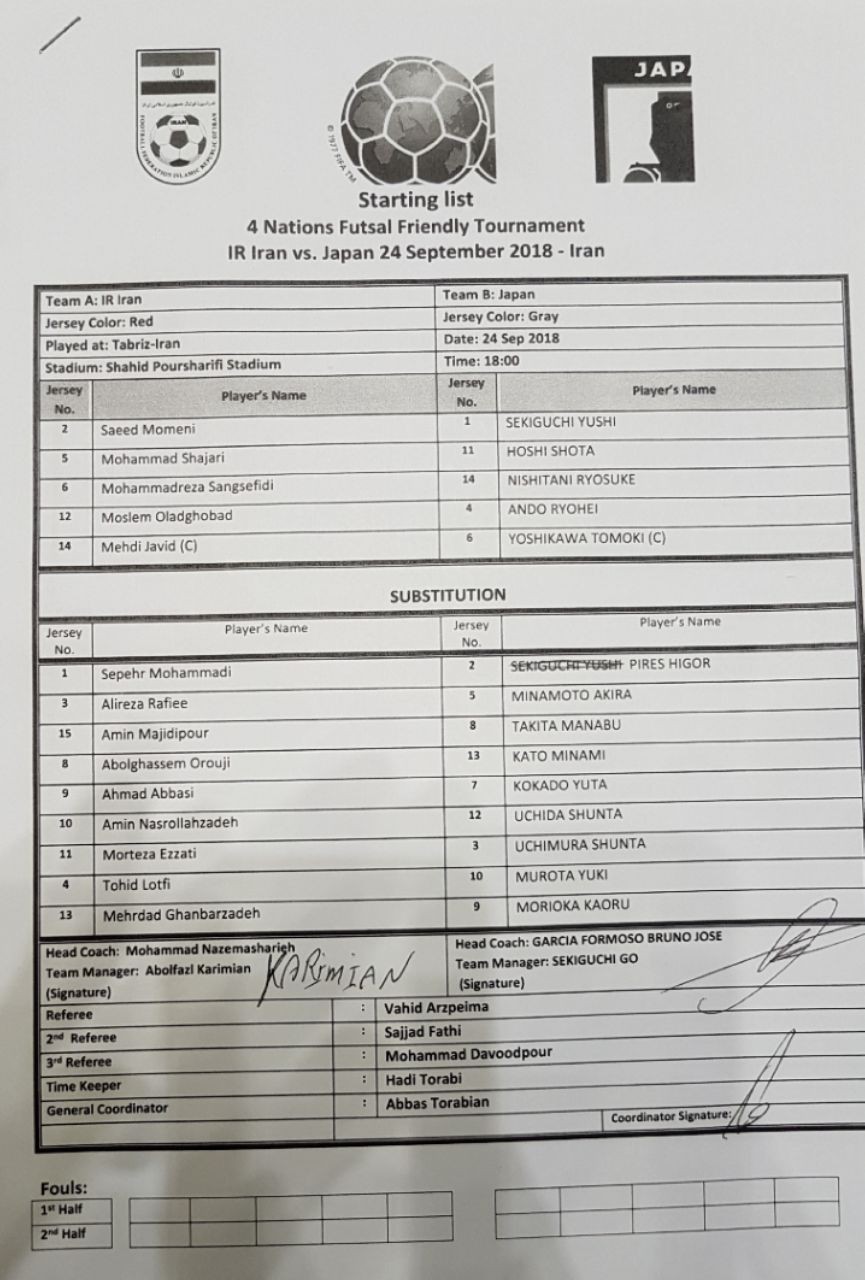 JAPA
IRAN
FOOTBALL FEDERATION ISLAMIC REPUBLIC OF IRAN
© 1977 FIFA TM
Starting list
4 Nations Futsal Friendly Tournament
IR Iran vs. Japan 24 September 2018 - Iran
Team A: IR Iran Team B: Japan
Jersey Color: Red Jersey Color: Gray
Played at: Tabriz-Iran Date: 24 Sep 2018
Stadium: Shahid Poursharifi Stadium Time: 18:00
Jersey No. Player's Name Jersey No. Player's Name
2 Saeed Momeni 1 SEKIGUCHI YUSHI
5 Mohammad Shajari 11 HOSHI SHOTA
6 Mohammadreza Sangsefidi 14 NISHITANI RYOSUKE
12 Moslem Oladghobad 4 ANDO RYOHEI
14 Mehdi Javid (C) 6 YOSHIKAWA TOMOKI (C)
SUBSTITUTION
Jersey No. Player's Name Jersey No. Player's Name
1 Sepehr Mohammadi 2 SEKIGUCHI YUSHI PIRES HIGOR
3 Alireza Rafiee 5 MINAMOTO AKIRA
15 Amin Majidipour 8 TAKITA MANABU
8 Abolghassem Orouji 13 KATO MINAMI
9 Ahmad Abbasi 7 KOKADO YUTA
10 Amin Nasrollahzadeh 12 UCHIDA SHUNTA
11 Morteza Ezzati 3 UCHIMURA SHUNTA
4 Tohid Lotfi 10 MUROTA YUKI
13 Mehrdad Ghanbarzadeh 9 MORIOKA KAORU
Head Coach: Mohammad Nazemasharieh Head Coach: GARCIA FORMOSO BRUNO JOSE
Team Manager: Abolfazl Karimian KARIMIAN Team Manager: SEKIGUCHI GO
(Signature) (Signature)
Referee : Vahid Arzpeima
2nd Referee : Sajjad Fathi
3rd Referee : Mohammad Davoodpour
Time Keeper : Hadi Torabi
General Coordinator : Abbas Torabian
Coordinator Signature:
Fouls:
1st Half
2nd Half